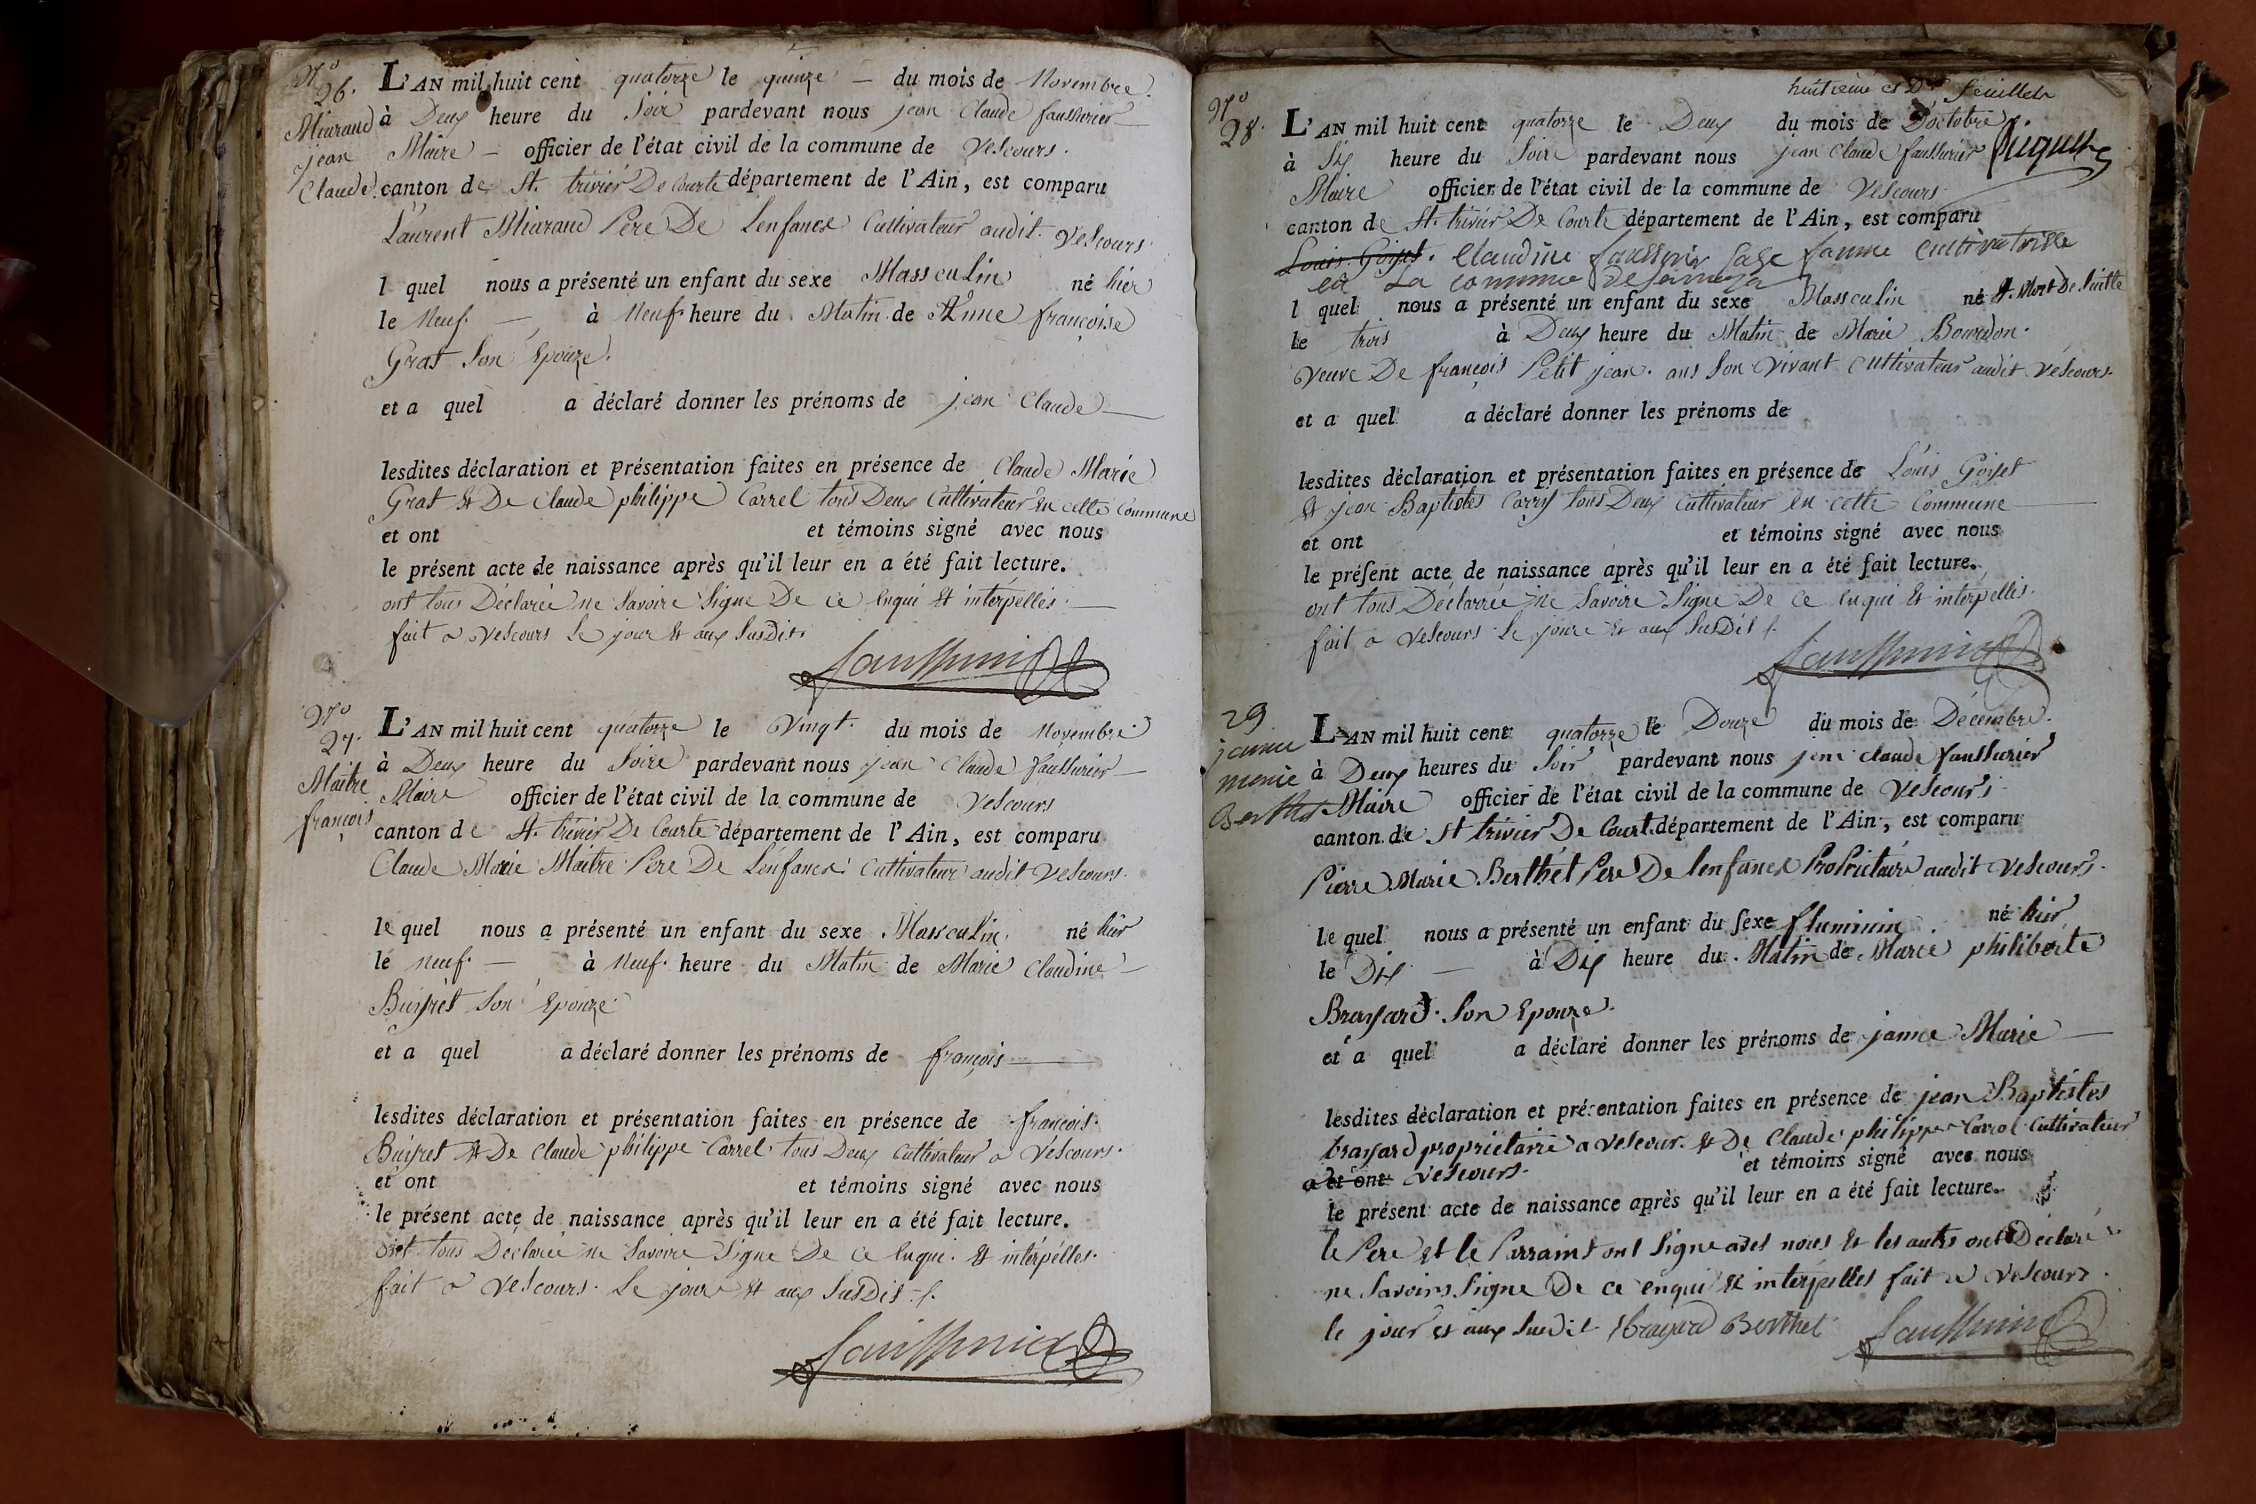 N.o
26.
Miaraud
jean
Claude.
L'AN mil huit cent quatorze le quinze — du mois de Novembre.
à Deux heure du Soir pardevant nous jean Claude faussurier
Maire — officier de l'état civil de la commune de Vescours.
canton de St. trivier De Courte département de l'Ain, est comparu
Laurent Miaraud Pere De Lenfance Cultivateur audit Vescours.
l quel nous a présenté un enfant du sexe Massculin né hier
le Neuf. — à Neuf heure du Matin de Anne françoise
Grat Son Epouze.
et a quel a déclaré donner les prénoms de jean Claude
lesdites déclaration et présentation faites en présence de Claude Marie
Grat Et De Claude philippe Carrel tous Deux Cultivateur En cette Commune
et ont et témoins signé avec nous
le présent acte de naissance après qu'il leur en a été fait lecture.
ont tous Déclarée ne Savoire Signe De ce Enqui Et interpellés.
fait a Vescours Le jour Et aux Susdit.
N.o
27.
Maitre
françois
L'AN mil huit cent quatorze le Vingt. du mois de Novembre
à Deux heure du Soire pardevant nous jean Claude faussurier
Maire officier de l'état civil de la commune de Vescours
canton de St. trivier De Courte département de l'Ain, est comparu
Claude Marie Maitre Pere De Lenfance Cultivateur audit Vescours.
le quel nous a présenté un enfant du sexe Massculin né hier
le neuf. — à Neuf heure du Matin de Marie Claudine
Son Epouze
et a quel a déclaré donner les prénoms de françois
lesdites déclaration et présentation faites en présence de françois
Et De Claude philippe Carrel tous Deux Cultivateur a Vescours.
et ont et témoins signé avec nous
le présent acte de naissance après qu'il leur en a été fait lecture.
ont tous Déclarée ne Savoire Signe De ce Enqui. Et interpelles.
fait a Vescours. Le joure Et aux Susdit
huitième et Der feuillet
N.o
28.
L'AN mil huit cent quatorze le Deux du mois de D'octobre
à Six heure du Soire pardevant nous jean Claude faussurier
Maire officier de l'état civil de la commune de Vescours
canton de St. trivier De Courte département de l'Ain, est comparu
Louis Goyet. Claudine Sage famme Cultivatrisse
La commune De
l quel nous a présenté un enfant du sexe Massculin né Et. Mort De Suitte
le trois à Deux heure du Matin de Marie Bourdon.
Veuve De françois Petit jean. ans Son Vivant Cultivateur audit Vescours.
et a quel a déclaré donner les prénoms de
lesdites déclaration et présentation faites en présence de Louis Goyet
Et jean Baptistes tous Deux Cultivateur En cette Commune
et ont et témoins signé avec nous
le présent acte de naissance après qu'il leur en a été fait lecture.
ont tous Déclarée ne Savoire Signe De ce Enqui Et interpellis.
fait a Vescours. Le joure Et aux SusDit
29
janne
marie
Berthet
L'AN mil huit cent quatorze le Douze du mois de Décembre.
à Deux heures du Soir pardevant nous jean Claude faussurier
Maire officier de l'état civil de la commune de Vescours
canton de St trivier De Court département de l'Ain, est comparu
Pierre Marie Berthet Pere De lenfance Proprietaire audit Vescours.
le quel nous a présenté un enfant du sexe fluminin né hier
le Dix — à Dix heure du Matin de Marie philiberte
Brayard. Son Epouze.
et a quel a déclaré donner les prénoms de janne Marie
lesdites déclaration et présentation faites en présence de jean Baptistes
brayard proprietaire a Vescour. Et De Claude philippe Carrol Cultivateur
a et ont Vescours. et témoins signé avec nous
le présent acte de naissance après qu'il leur en a été fait lecture.
le Pere et le Parraint ont Signe avec nous Et les autre ont Déclaré
ne Savoirs Signe De ce enqui Et interpelles fait a Vescours
le jour et aux Susdit brayard Berthet